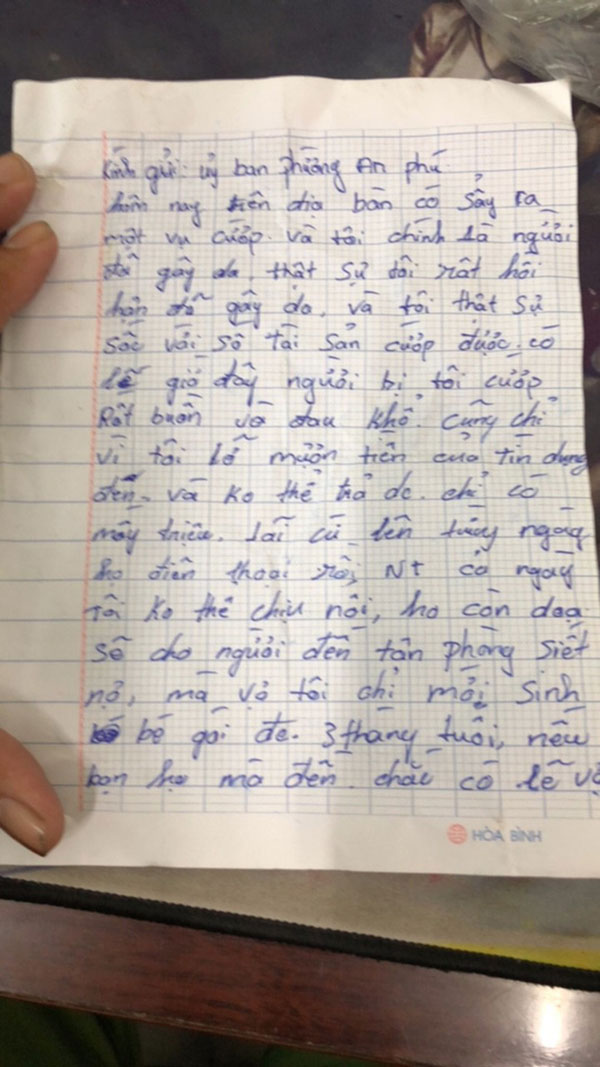 Kính gửi: uỷ ban phường An phú
hôm nay trên địa bàn có sảy ra
một vụ cướp. và tôi chính là người
đã gây da. thật sự tôi rất hối
hận đã gây da. và tôi thật sự
sốc với số tài sản cướp được. có
lẽ giờ đây người bị tôi cướp
Rất buồn và đau khổ. cũng chỉ
vì tôi lỡ mượn tiền của tín dụng
đen. và ko thể trả dc. chỉ có
mấy triệu. lãi cứ lên từng ngày
họ điện thoại rồi, NT cả ngày
Tôi ko thể chịu nổi, họ còn doạ
sẽ cho người đến tận phòng siết
nợ, mà vợ tôi chỉ mới sinh
bé gái đc. 3 tháng tuổi, nếu
bọn họ mà đến. chắc có lẽ vợ
HÒA BÌNH